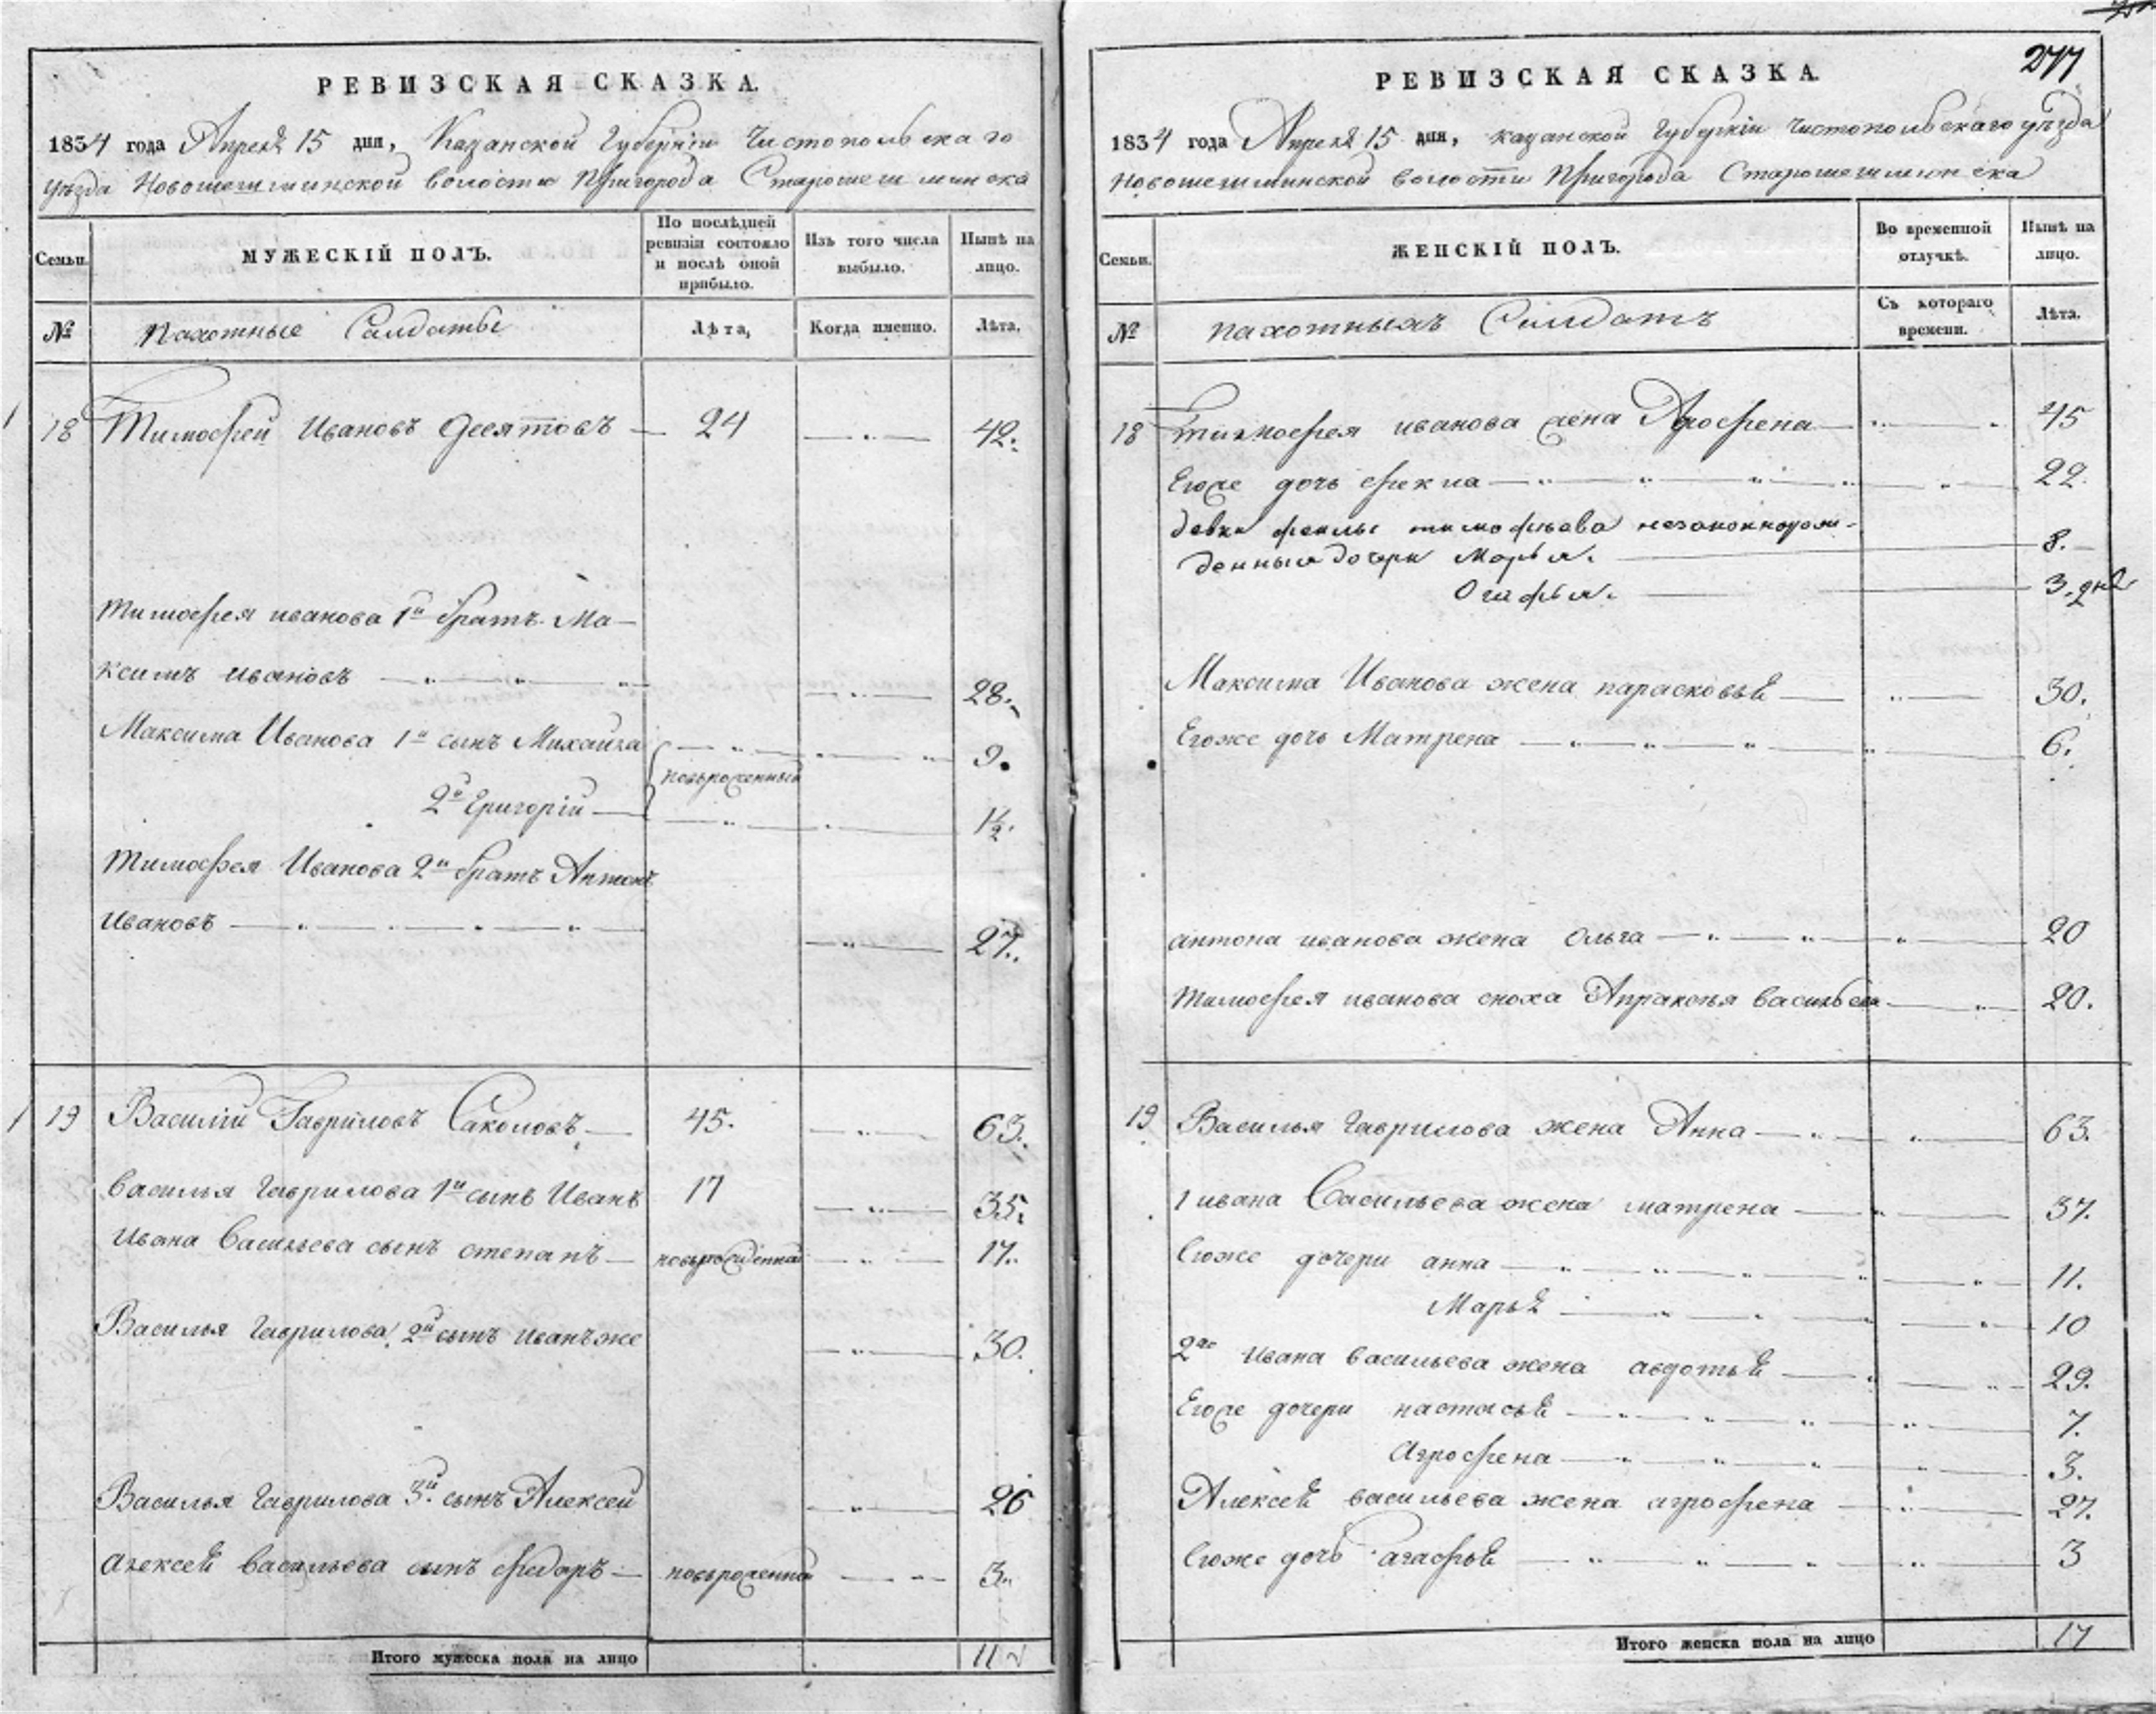 РЕВИЗСКАЯ СКАЗКА.
1834 года Апреля 15 дня, Казанской Губернiи Чистопольскаго
уѣзда Новошешминской волости Пригорода Старошешминска
Семьи.
МУЖЕСКIЙ ПОЛЪ.
По послѣдней ревизiи состояло и послѣ оной прибыло.
Изъ того числа выбыло.
Нынѣ на лицо.
№ Пахотные Салдаты
Лѣта,
Когда именно.
Лѣта.
1 18 Тимофей Ивановъ Десятовъ — 24 42.
Тимофея иванова 1й братъ Ма-
ксимъ ивановъ 28.
Максима Иванова 1й сынъ Михайла 9.
новорожденныи
2й Григорiй 1½.
Тимофея Иванова 2й братъ Антонъ
Ивановъ 27.
1 19 Василiй Гавриловъ Саколовъ 45. 63.
Василья Гаврилова 1й сынъ Иванъ 17 35.
Ивана Васильева сынъ степанъ новорожденной 17.
Василья Гаврилова 2й сынъ иванъ же 30.
Василья Гаврилова 3й сынъ Алексей 26
Алексея Васильева сынъ федоръ новорожденной 3.
Итого мужеска пола на лицо 11
277
РЕВИЗСКАЯ СКАЗКА.
1834 года Апреля 15 дня, казанской Губернiи Чистопольскаго уѣзда
Новошешминской волости Пригорода Старошешминска
Семьи.
ЖЕНСКIЙ ПОЛЪ.
Во временной отлучкѣ.
Нынѣ на лицо.
№ пахотныхъ Салдатъ
Съ котораго времени.
Лѣта.
18 Тимофея иванова жена Агрофена 45
Егоже дочь фекла 22.
девки феклы тимофѣева незаконнорож-
денные дочери Марья. 8.
Огафья. 3. дня
Максима Иванова жена парасковья 30.
Егоже дочь Матрена 6.
антона иванова жена Ольга 20
Тимофея иванова сноха Апраксѣя васильева 20.
19 Василья Гаврилова жена Анна 63.
1 ивана Васильева жена матрена 37.
Егоже дочери анна 11.
Марья 10
2го ивана васильева жена авдотья 29.
Егоже дочери настасья 7.
Агрофена 3.
Алексея васильева жена агрофена 27.
Егоже дочь агафья 3
Итого женска пола на лицо 17